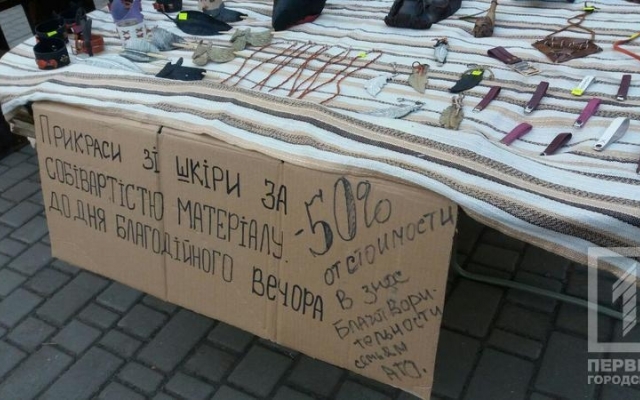 Прикраси зі шкіри за
собівартістю матеріалу.
до дня благодійного вечора
-50%
от стоимости
в знак
благотвори-
тельности
семьям
АТО.
ПЕРВ
ГОРОДС